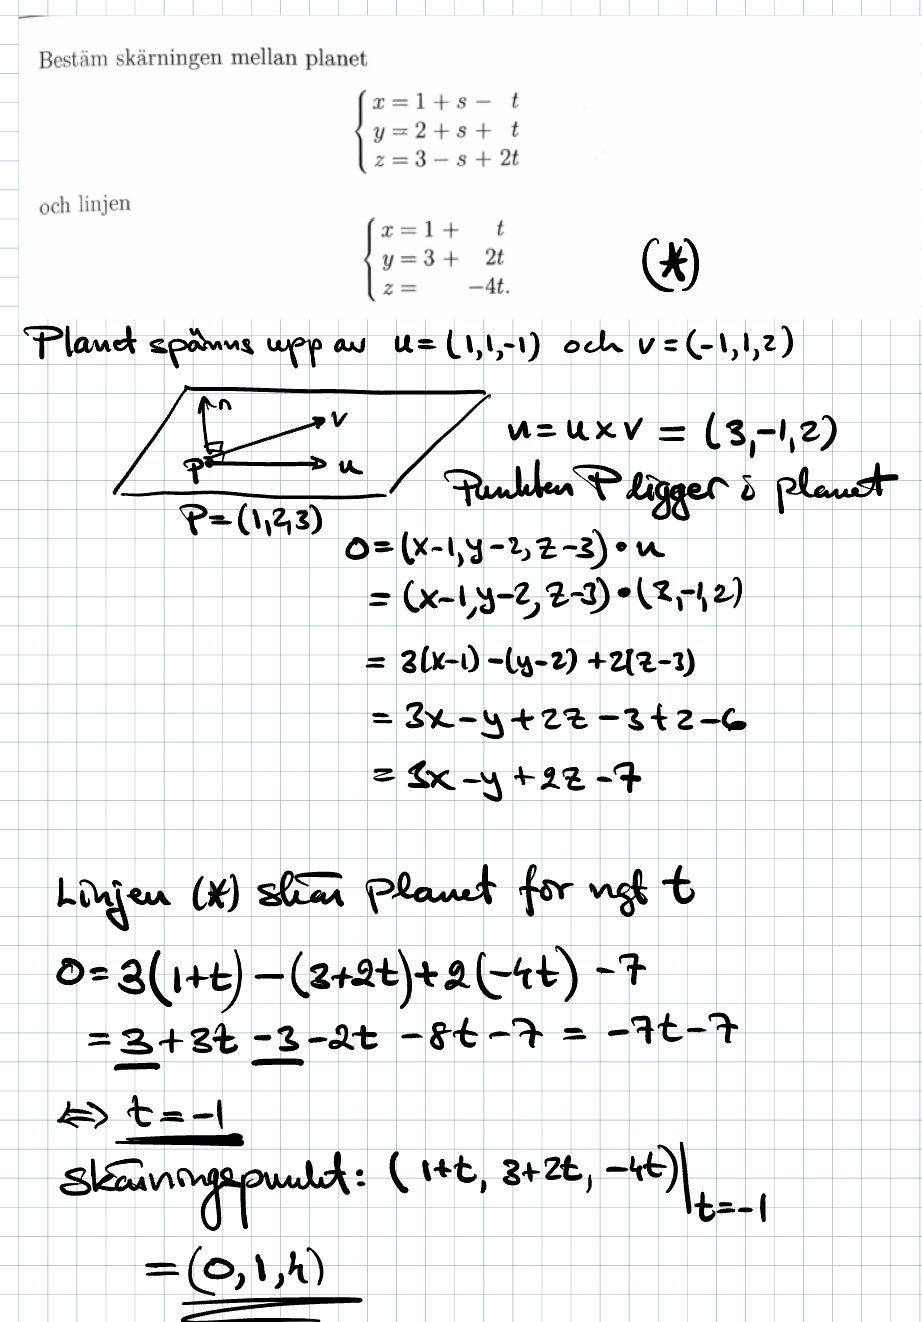 Bestäm skärningen mellan planet
x = 1 + s − t
y = 2 + s + t
z = 3 − s + 2t
och linjen
x = 1 + t
y = 3 + 2t
z = −4t.
(*)
Planet spänns upp av u=(1,1,-1) och v=(-1,1,2)
n
v
P
u
n=u×v = (3,-1,2)
Punkten P ligger i planet
P=(1,2,3)
0=(x-1,y-2,z-3)•n
=(x-1,y-2,z-3)•(3,-1,2)
= 3(x-1)-(y-2)+2(z-3)
= 3x-y+2z-3+2-6
= 3x-y+2z-7
Linjen (*) skär planet för ngt t
0=3(1+t)-(3+2t)+2(-4t)-7
=3+3t-3-2t-8t-7 = -7t-7
⇔ t=-1
Skärningspunkt: (1+t, 3+2t, -4t)|t=-1
=(0,1,4)